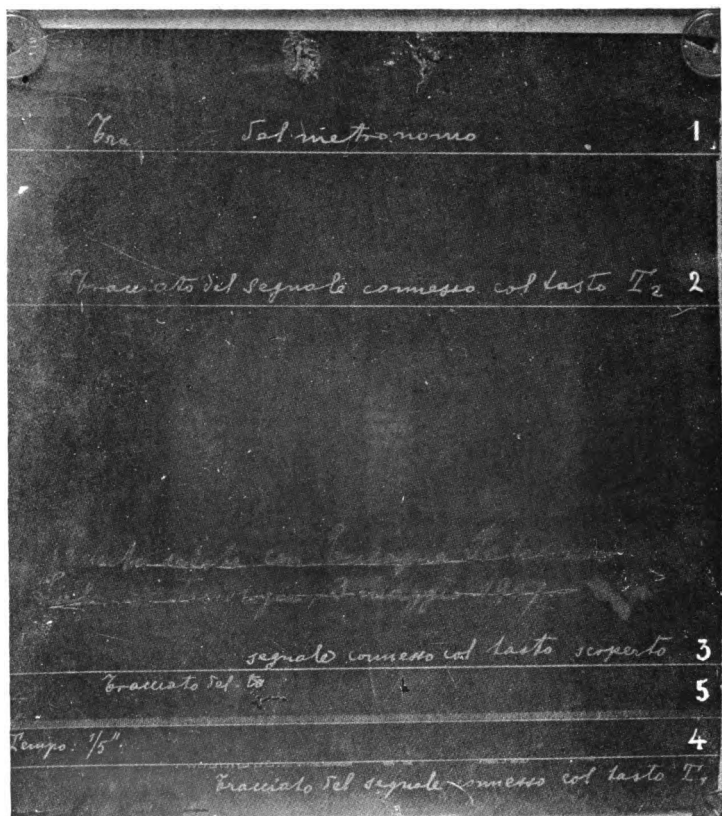 Tra del metronomo 1
Tracciato del segnale connesso col tasto T₂ 2
con Eusapia
maggio
segnale connesso col tasto scoperto 3
Tracciato del 5
Tempo: 1/5". 4
Tracciato del segnale connesso col tasto T₁